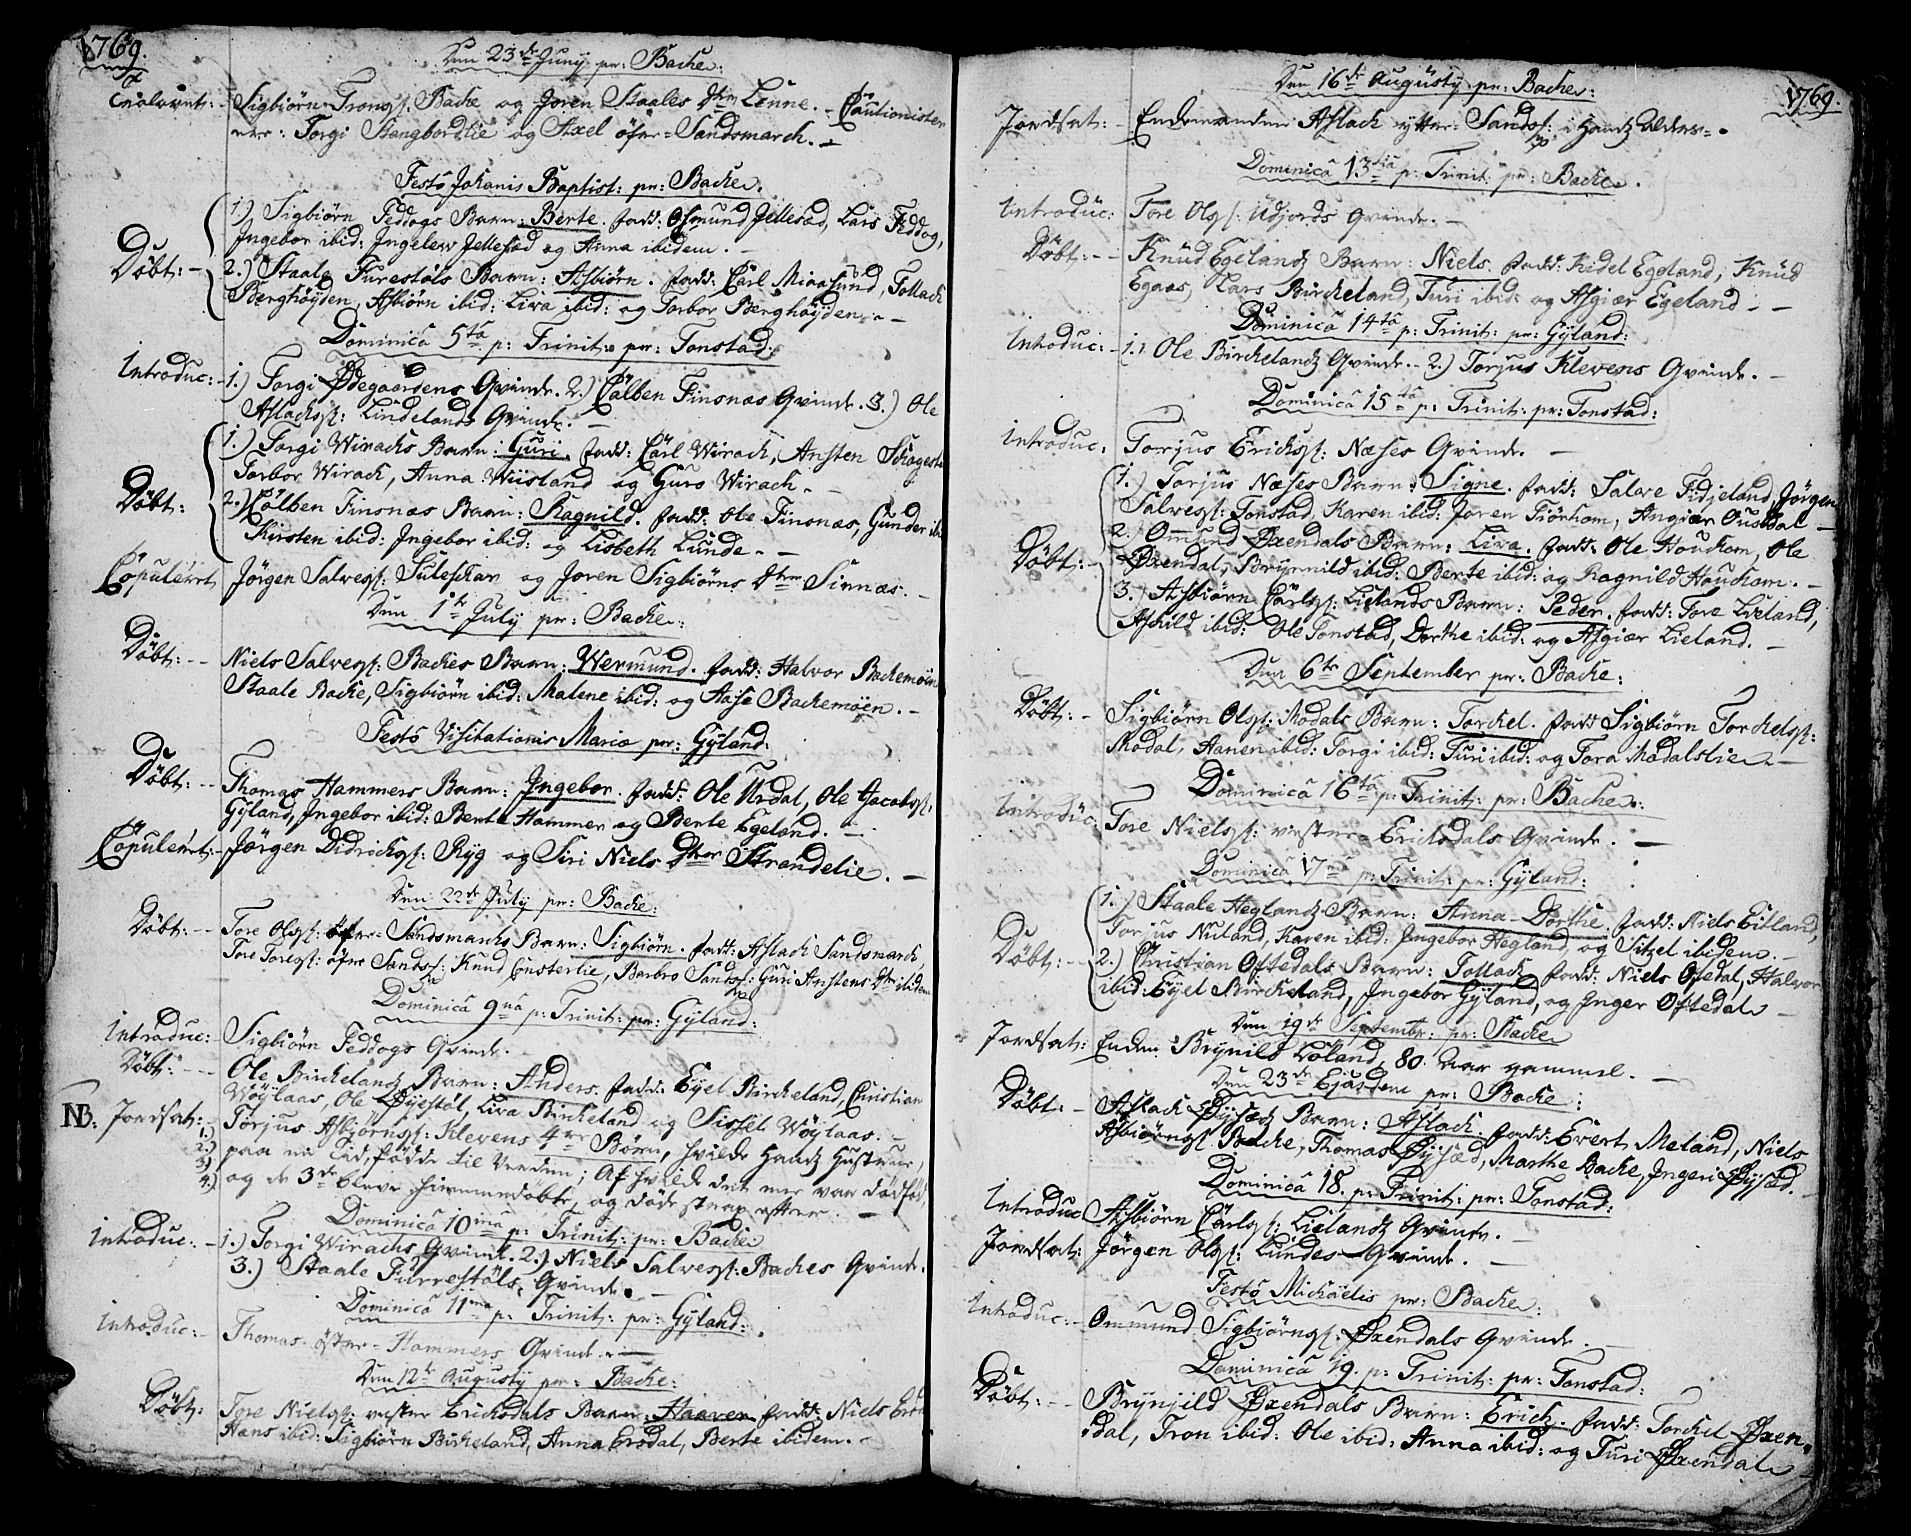 1769.
Den 23de Juny pr: Backe:
Trolovet: Sigbiørn Trongs: Backe og Joren Staales Dtr Lenne. - Cautionister
ere: Torgi Stangbordlie og Axel öfre = Sandsmarch. -
Festo Johanis Baptist: pr: Backe.
1.) Sigbiørn Feddogs Barn: Berte. fadd: Osmund Jellesæd, Lars Feddog,
Døbt: - Ingebor ibid: Ingelew Jellesæd og Anna ibidem. -
2.) Staale Furestøls Barn: Asbiørn. fadd: Carl Miaasund, Tollack
Berghøyden, Asbiørn ibid: Liva ibid: og Torbor Berghøyden. -
Dominica 5ta p: Trinit: pr: Tonstad:
Introduc: - 1.) Torgi Ødegaardens Qvinde. 2.) Colben Finsnæs Qvinde. 3.) Ole
Aslachs: Lindelands Qvinde. -
1.) Torgi Wirachs Barn: Guri. fadd: Carl Wirach, Ansten Schagest
Torbor Wirach, Anna Wiisland og Guro Wirach. -
Døbt: 2.) Colben Finsnæs Barn: Ragnild. fadd: Ole Finsnæs, Gunder ibi
Kirsten ibid: Ingebor ibid: og Lisbeth Lunde. -
Copuleret Jørgen Salvegs: Suleskar og Joren Sigbiørns Dtr Sirnæs. -
Den 1te July pr: Backe:
Døbt: - - Niels Salvegs: Backes Barn: Wermund. fadd: Halvor Backemøen
Staale Backe, Sigbiørn ibid: Malene ibid: og Aase Backemøen. -
Festo Visitationis Mariæ pr: Gyland:
Døbt: - - Thomas Hammers Barn: Ingebor. fadd: Ole Urdal, Ole Jacobs:
Gyland, Ingebor ibid: Berte Hammer og Berte Egeland. -
Copuleret: - Jørgen Didrichs: Ryg og Siri Niels Dtter Strandelie. -
Den 22de July pr: Backe:
Døbt: - - Tore Olgs: öfre = Sandsmarchs Barn: Sigbiørn. fadd: Aslack Sandsmarch,
Tore Toregs: öfre Sands: Knud Consterlie, Barbro Sands: Guri Anstens Dtr ibidem
Dominica 9na p: Trinit: pr: Gyland:
Introduc: - Sigbiørn Feddogs Qvinde. -
Døbt: - - - Ole Birckelandz Barn: Anders. fadd: Eyel Birckeland, Christian
Wöylaas, Ole Øyestøl, Liva Birckeland og Sissel Wöylaas. -
NB: Jordsat: 1.) Torjus Asbiørngs: Klevens 4re Børn, hvilde Handz Hustrue,
2.) paa en Tid, födde til Verden; Af hvilde det ene var dödföd,
3.)
4.) og de 3de bleve hiemmedöbte, og döde strax efter. -
Dominica 10ma p: Trinit: pr: Backe
Introduc: - 1.) Torgi Wirachs Qvinde. 2.) Niels Salvegs: Backes Qvinde.
3.) Staale Furrestöls Qvinde. -
Dominica 11ma p: Trinit: pr: Gyland:
Introduc: - Thomas öster = Hammers Qvinde. -
Den 12te Augusty pr: Backe:
Døbt: Tore Nielgs: vester Ericksdals Barn: Haaver fadd: Niels Ersd
Hans ibid: Sigbiørn Birckeland, Anna Ersdal, Berte ibidem. -
1769.
Den 16de Augusty pr: Backe:
Jordsat: - Enckemanden Aslach ytter = Sands: i Handz Alder =.
Dominica 13tia p: Trinit: pr: Backe.
Introduc: Tore Olgs: Udjords Qvinde. -
Døbt: - - Knud Egelandz Barn: Niels. fadd: Kidel Egeland, Knud
Egaas, Lars Birckeland, Turi ibid: og Asgiær Egeland - -
Dominica 14ta p: Trinit: pr: Gyland:
Introduc: - 1.) Ole Birckelandz Qvinde. - 2.) Torjus Klevens Qvinde. -
Dominica 15ta p: Trinit: pr: Tonstad:
Introduc: Torjus Ericksgs: Næses Qvinde. -
1.) Torjus Næses Barn: Signe. fadd: Salve Fidjeland, Jørgen
Salvegs: Tonstad, Karen ibid: Joren Tiörhom, Angiær Ousdal -
2.) Omund Øxendals Barn: Liva. fadd: Ole Houckom, Ole
Døbt: - Øxendal, Brynnild ibid: Berte ibid: og Ragnild Houckom. -
3.) Asbiørn Carlgs: Lielands Barn: Peder. fadd: Tore Lieland,
Aschild ibid: Ole Tonstad, Dorthe ibid: og Asgiær Lieland. -
Den 6te September pr: Backe:
Døbt: - Sigbiørn Olgs: Modals Barn: Torckel. fadd Sigbiørn Torckelgs:
Modal, Hanen ibid: Torgi ibid: Turi ibid: og Tora Modalslie. -
Dominica 16ta p: Trinit: pr: Backe:
Introduc: Tore Nielgs: vester = Ericksdals Qvinde. -
Dominica 17ma p: Trinit: pr: Gyland:
1.) Staale Heglandz Barn: Anna - Dorthe. fadd: Niels Eitland,
Torjus Nuland, Karen ibid: Ingebor Hegland og Sitzel ibidem. -
Døbt: - 2.) Christian Oftedals Barn: Tollack fadd: Niels Oftedal, Halvor
ibid: Eyel Birckeland, Ingebor Gyland, og Inger Oftedal -
Den 19de Septembr: pr: Backe
Jordsat: Encken Brynild Löland, 80. Aar gammel. -
Den 23de Ejusdem pr: Backe:
Døbt: - Aslack Øysædz Barn: Aslack. fadd: Evert Meland, Niels
Asbiørngs: Backe, Thomas Øysæd, Marthe Backe, Ingeri Øysæd.
Dominica 18. p: Trinit: pr: Tonstad:
Introduc Asbiørn Carlgs: Lielandz Qvinde. -
Jordsat: Jørgen Olgs: Lundes Qvinde. -
Festo Michaëlis pr: Backe:
Introduc: - Ommund Sigbiørngs: Øxendals Qvinde. -
Dominica 19. p: Trinit: pr: Tonstad:
Døbt: - - Brynjild Øxendals Barn: Erick. fadd: Torckel Øxen-
dal, Tron ibid: Ole ibid: Anna ibid: og Turi Øxendal